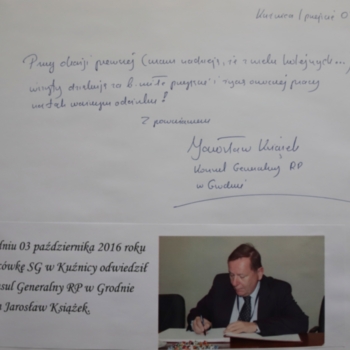 Przy okazji pierwszej (mam nadzieję, że z wielu kolejnych...)
wizyty dziękuję za b. miłe przyjęcie i życzę owocnej pracy
na tak ważnym odcinku!
Z poważaniem
Jarosław Książek
Konsul Generalny RP
w Grodnie
dniu 03 października 2016 roku
cówkę SG w Kuźnicy odwiedził
sul Generalny RP w Grodnie
n Jarosław Książek.